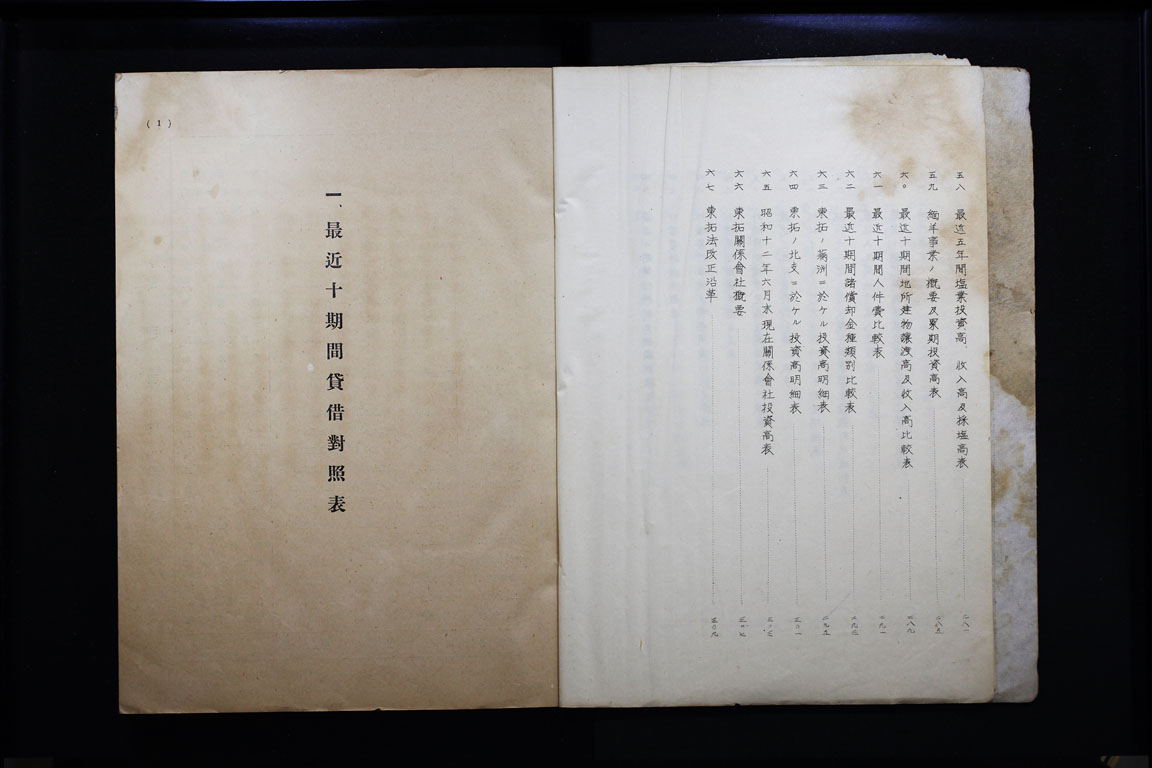 五八 最近五年間塩業投資高 收入高及採塩高表 二八一
五九 緬羊事業ノ概要及累期投資高表 二八五
六〇 最近十期間地所建物譲渡高及收入高比較表 二八九
六一 最近十期間人件費比較表 二九一
六二 最近十期間諸償却金種類別比較表 二九三
六三 東拓ノ満洲ニ於ケル投資高明細表 二九五
六四 東拓ノ北支ニ於ケル投資高明細表 三〇一
六五 昭和十二年六月末現在關係會社投資高表 三〇三
六六 東拓關係會社概要 三〇七
六七 東拓法改正沿革 五〇九
(1)
一、最近十期間貸借對照表